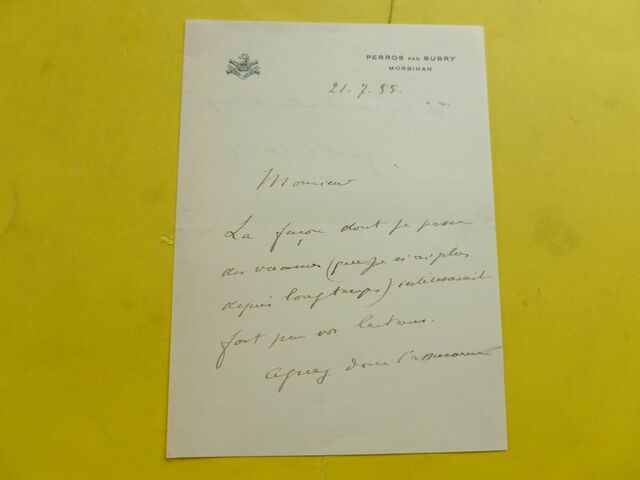 PERROS PAR BUBRY
MORBIHAN
21. 7. 35.
Monsieur
La façon dont je passe
des vacances (que je n'ai plus
depuis longtemps) intéresserait
fort peu vos lecteurs.
Agréez donc l'assurance